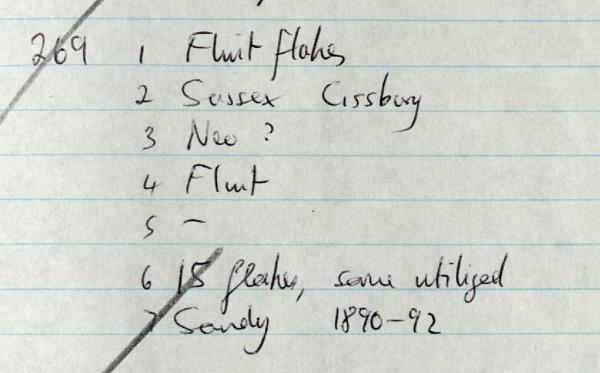 269 1 Flint flakes
2 Sussex Cissbury
3 Neo ?
4 Flint
5 -
6 15 flakes, some utilized
7 Sandy 1890-92